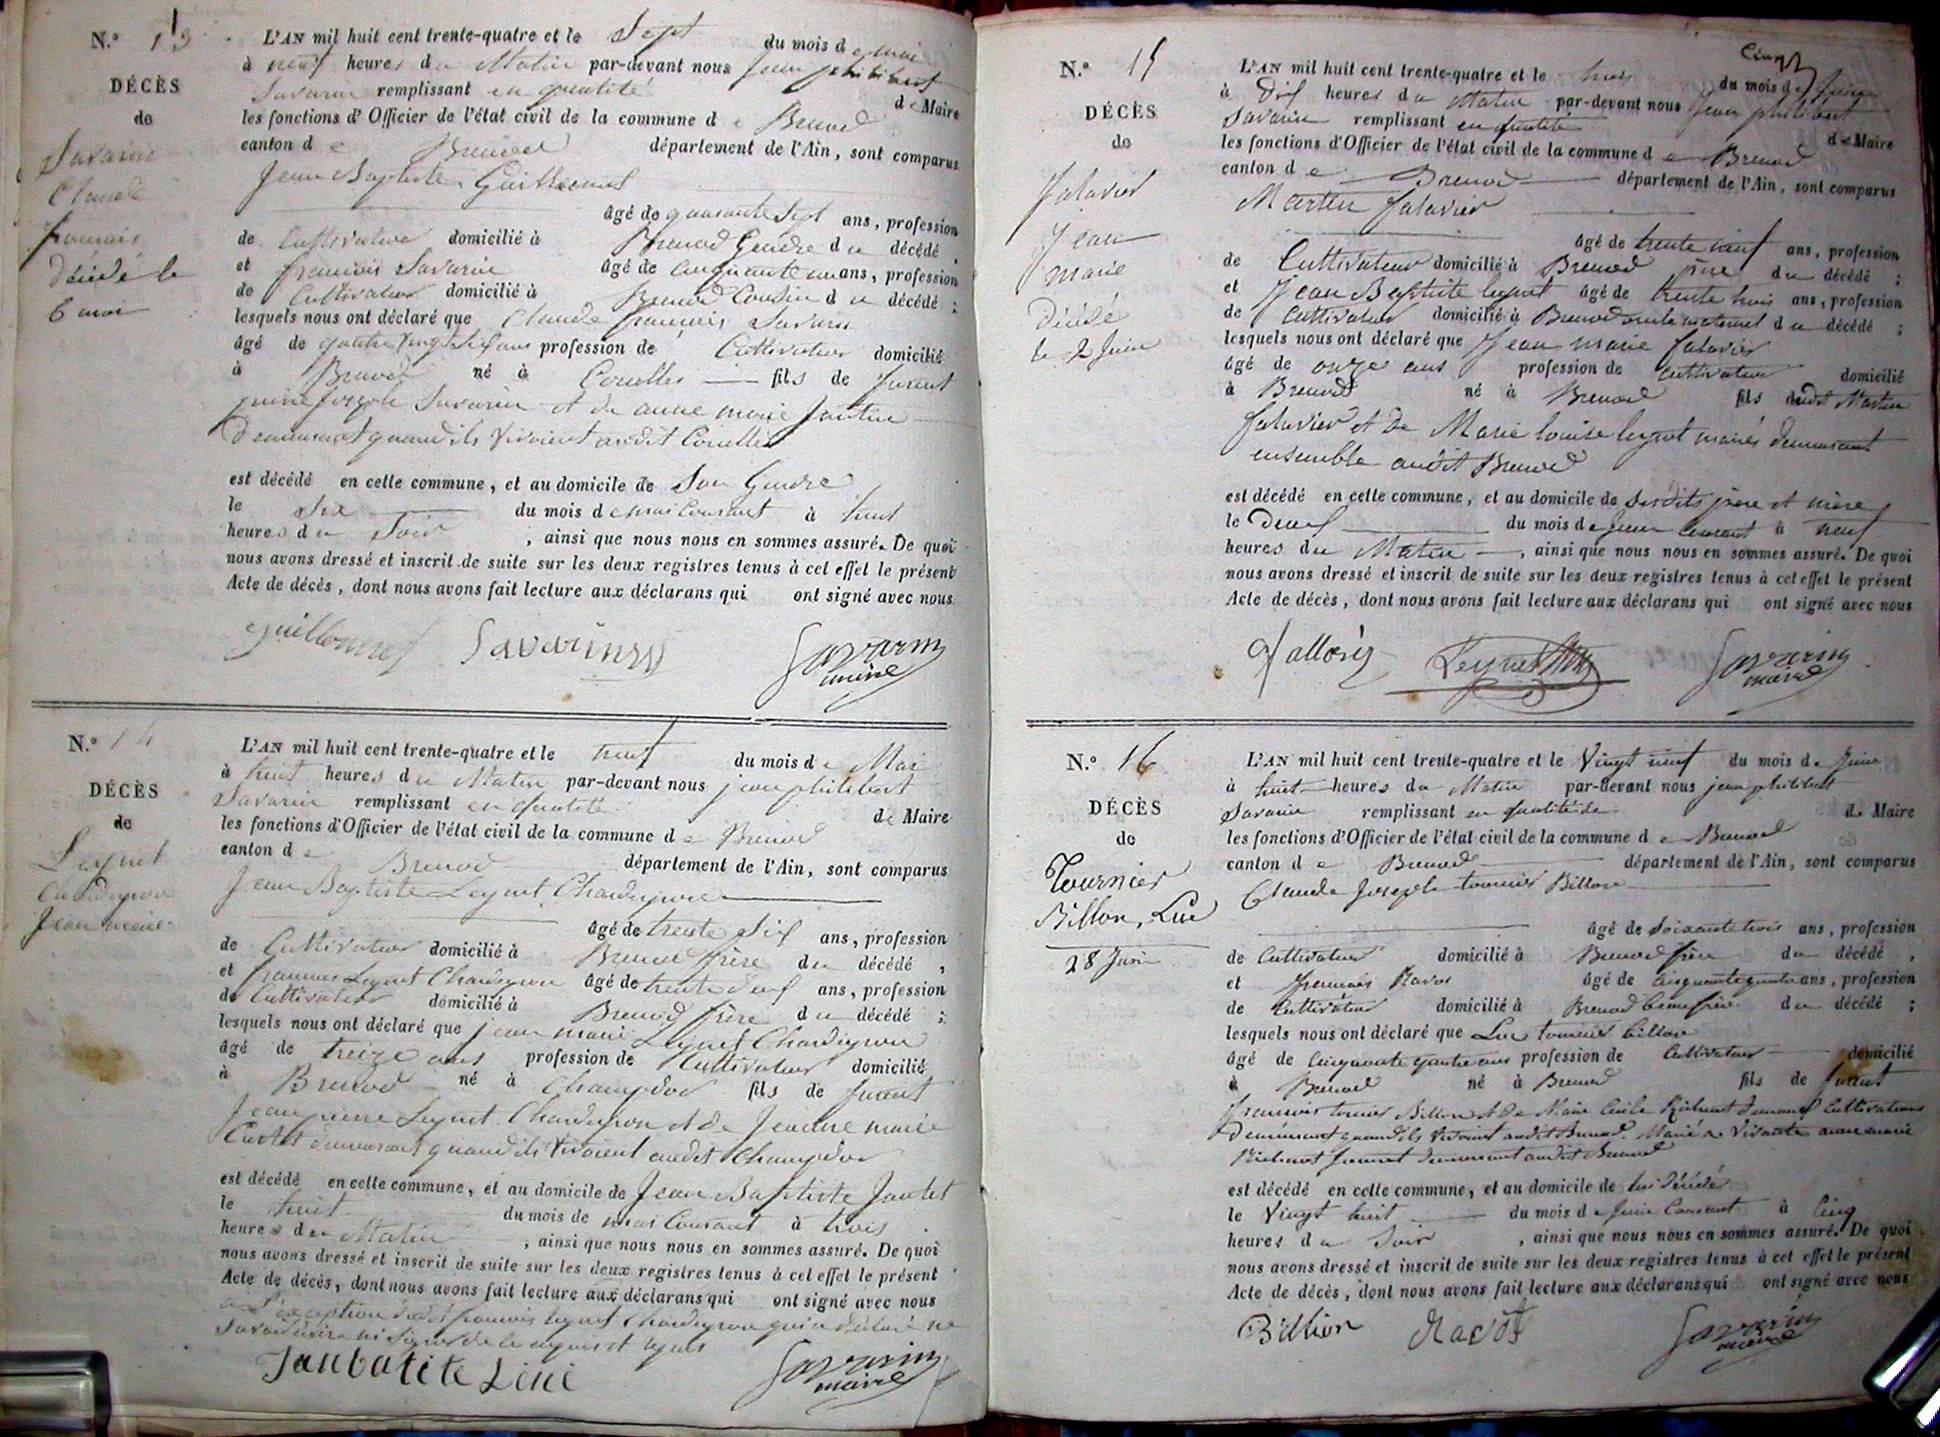 N.° 13
DÉCÈS
de
Savarin
Claude
françois
Décédé le
6 mai
L'AN mil huit cent trente-quatre et le Sept du mois de mai
à neuf heures du Matin par-devant nous Jean philibert
Savarin remplissant en qualité de Maire
les fonctions d'Officier de l'état civil de la commune de Brenod
canton de Brenod département de l'Ain, sont comparus
Jean Baptiste Guillermet
âgé de quarante Sept ans, profession
de Cultivateur domicilié à Brenod Gendre du décédé,
et françois Savarin âgé de cinquante un ans, profession
de Cultivateur domicilié à Brenod Cousin du décédé;
lesquels nous ont déclaré que Claude françois Savarin
âgé de quatre vingt six ans profession de Cultivateur domicilié
à Brenod né à Corcelles fils de furent
pierre Joseph Savarin et de anne marie
Demeurant quand ils vivoient audit Corcelles
est décédé en cette commune, et au domicile de Son Gendre
le Six du mois de mai Courant à huit
heures du Soir, ainsi que nous nous en sommes assuré. De quoi
nous avons dressé et inscrit de suite sur les deux registres tenus à cet effet le présent
Acte de décès, dont nous avons fait lecture aux déclarans qui ont signé avec nous.
Guillermet Savarin Savarin
maire
N.° 14
DÉCÈS
de
Leynet
Chardeyron
Jean marie
L'AN mil huit cent trente-quatre et le huit du mois de Mai
à huit heures du Matin par-devant nous jean philibert
Savarin remplissant en qualité de Maire
les fonctions d'Officier de l'état civil de la commune de Brenod
canton de Brenod département de l'Ain, sont comparus
Jean Baptiste Leynet Chardeyron
âgé de trente Six ans, profession
de Cultivateur domicilié à Brenod frère du décédé,
et françois Leynet Chardeyron âgé de trente deux ans, profession
de Cultivateur domicilié à Brenod frère du décédé;
lesquels nous ont déclaré que jean marie Leynet Chardeyron
âgé de treize ans profession de Cultivateur domicilié
à Brenod né à Champdor fils de furent
Jean pierre Leynet Chardeyron et de Jeanne marie
demeurant quand ils vivoient audit Champdor
est décédé en cette commune, et au domicile de Jean Baptiste Jantet
le huit du mois de mai Courant à trois
heures du Matin, ainsi que nous nous en sommes assuré. De quoi
nous avons dressé et inscrit de suite sur les deux registres tenus à cet effet le présent
Acte de décès, dont nous avons fait lecture aux déclarans qui ont signé avec nous
à l'exception dudit françois Leynet Chardeyron qui a déclaré ne
Savoir écrire ni signer de ce enquis et requis
Janbatite Léné Savarin
maire
N.° 15
DÉCÈS
de
Falavier
Jean
marie
Décédé
le 2 Juin
L'AN mil huit cent trente-quatre et le trois du mois de Juin
à Dix heures du Matin par-devant nous Jean philibert
Savarin remplissant en qualité de Maire
les fonctions d'Officier de l'état civil de la commune de Brenod
canton de Brenod département de l'Ain, sont comparus
Martin falavier
âgé de trente neuf ans, profession
de Cultivateur domicilié à Brenod père du décédé;
et Jean Baptiste leynet âgé de trente trois ans, profession
de Cultivateur domicilié à Brenod oncle maternel du décédé;
lesquels nous ont déclaré que Jean marie falavier
âgé de onze ans profession de cultivateur domicilié
à Brenod né à Brenod fils dudit Martin
falavier et de Marie louise leynet mariés demeurant
ensemble audit Brenod
est décédé en cette commune, et au domicile de Sesdits père et mère
le Deux du mois de Juin Courant à neuf
heures du Matin, ainsi que nous nous en sommes assuré. De quoi
nous avons dressé et inscrit de suite sur les deux registres tenus à cet effet le présent
Acte de décès, dont nous avons fait lecture aux déclarans qui ont signé avec nous
Leynet Savarin
maire
N.° 16
DÉCÈS
de
Tournier
Billon, Luc
28 Juin
L'AN mil huit cent trente-quatre et le Vingt neuf du mois de Juin
à huit heures du Matin par-devant nous jean philibert
Savarin remplissant en qualité de de Maire
les fonctions d'Officier de l'état civil de la commune de Brenod
canton de Brenod département de l'Ain, sont comparus
Claude Joseph tournier Billon
âgé de Soixante trois ans, profession
de Cultivateur domicilié à Brenod frère du décédé,
et françois Ravot âgé de Cinquante quatre ans, profession
de Cultivateur domicilié à Brenod beau frère du décédé;
lesquels nous ont déclaré que Luc tournier billon
âgé de Cinquante quatre ans profession de Cultivateur domicilié
à Brenod né à Brenod fils de furent
françois tournier Billon et de Marie Cécile Cultivateurs
Demeurant quand ils vivoient audit Brenod. Marié a vivante anne marie
demeurant audit Brenod
est décédé en cette commune, et au domicile de lui décédé
le Vingt huit du mois de Juin Courant à Cinq
heures du Soir, ainsi que nous nous en sommes assuré. De quoi
nous avons dressé et inscrit de suite sur les deux registres tenus à cet effet le présent
Acte de décès, dont nous avons fait lecture aux déclarans qui ont signé avec nous
Billion Ravot Savarin
maire